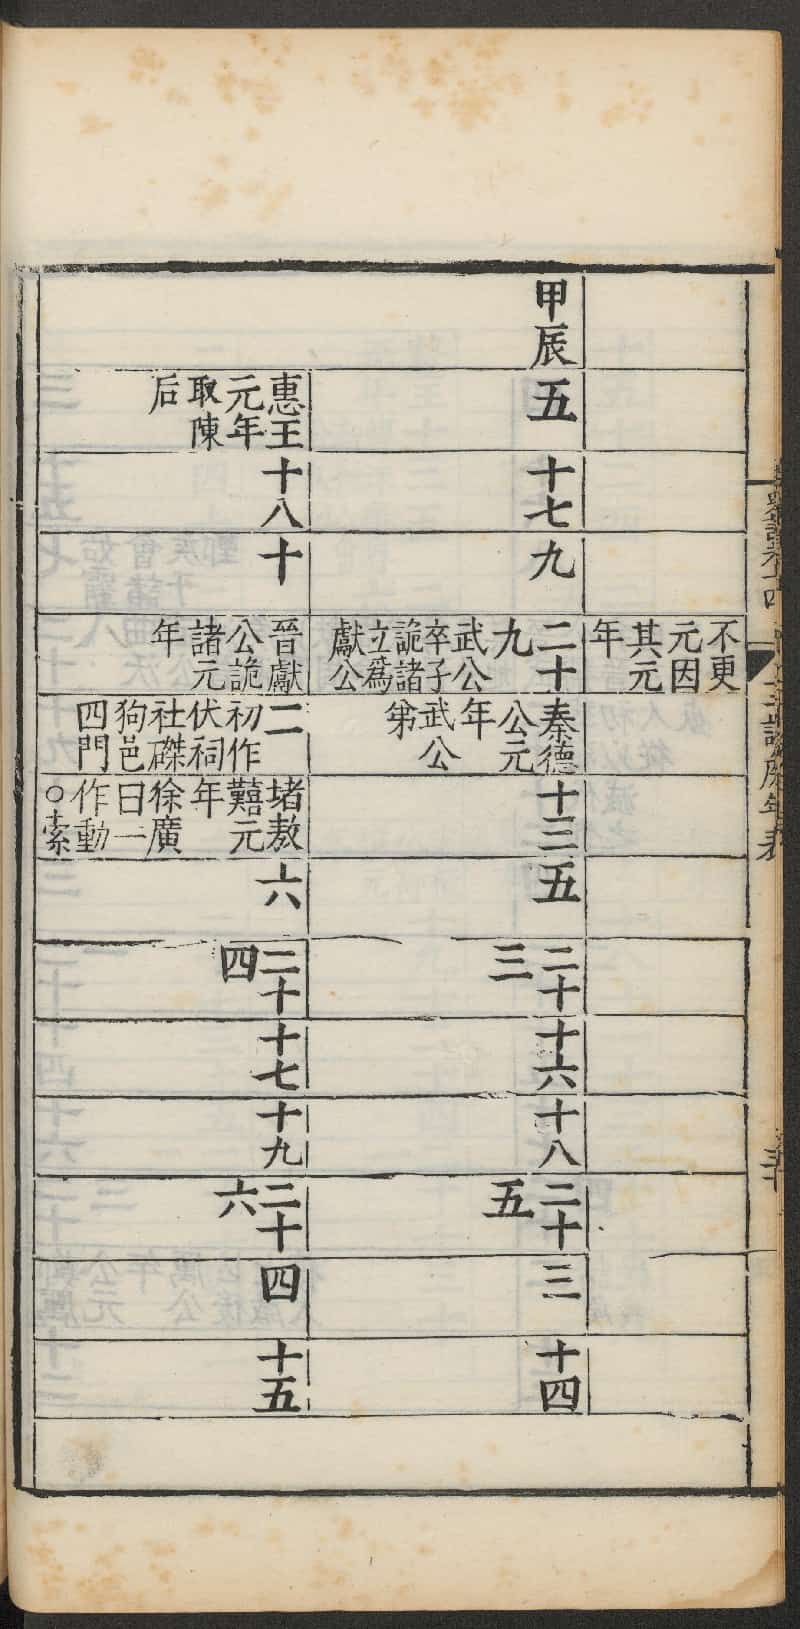 十二諸侯年表
不更
元因
其元
年
甲辰
五
十七
九
二十
九
武公
卒子
詭諸
立爲
獻公
秦德
公元
年
武公
弟
十三
五
二十
三
十六
十八
二十
五
三
十四
惠王
元年
取陳
后
十八
十
晉獻
公詭
諸元
年
二
初作
伏祠
社磔
狗邑
四門
堵敖
囏元
年
徐廣
曰一
作動
○索
六
二十
四
十七
十九
二十
六
四
十五